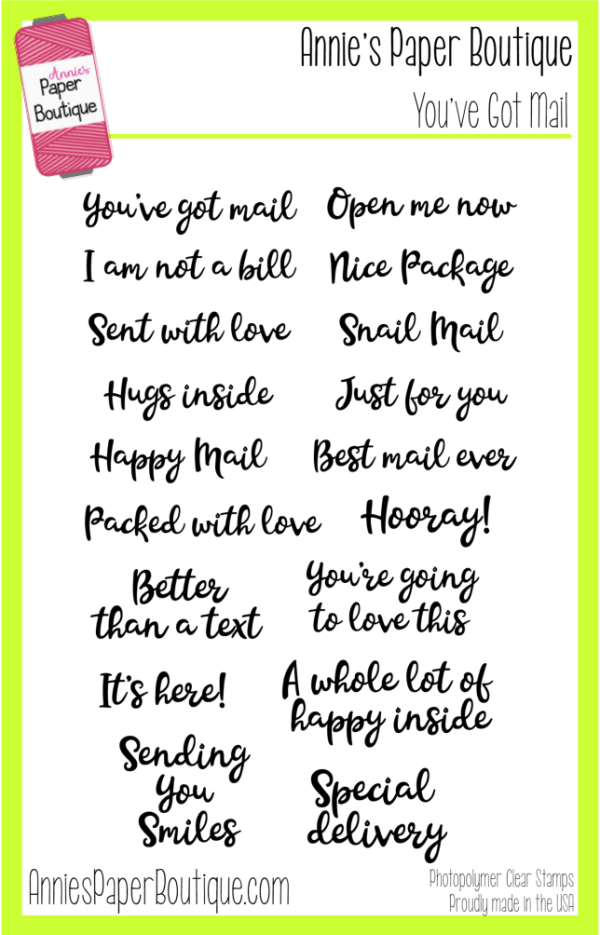 Annie's Paper Boutique
You've Got Mail
Annie's
Paper
Boutique
You've got mail
Open me now
I am not a bill
Nice Package
Sent with love
Snail Mail
Hugs inside
Just for you
Happy Mail
Best mail ever
Packed with love
Hooray!
Better
than a text
You're going
to love this
It's here!
A whole lot of
happy inside
Sending
You
Smiles
Special
delivery
AnniesPaperBoutique.com
Photopolymer Clear Stamps
Proudly made in the USA